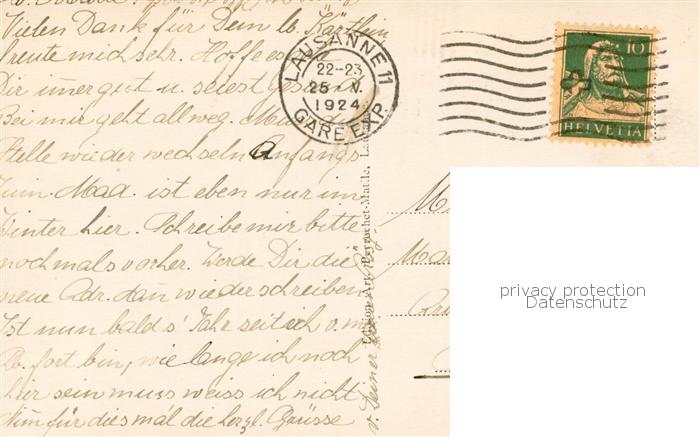 Vielen Dank für Dein lb. Kärtlein
freute mich sehr. Hoffe es
Dir immer gut u. selbst
Bei mir geht allweg.
Stelle wieder wechseln Anfangs
Mad. ist eben nur im
Winter hier. Schreibe mir bitte
nochmals vorher. Werde Dir die
neue Adr. dan wieder schreiben
Ist nun bald s' Jahr seit ich v.
lb. fort bin, wie lange ich noch
hier sein muss weiss ich nicht
Nim für diesmal die herzl. Grüsse
v. Deiner
Edition Art. Perrochet-Matile, Lau
LAUSANNE 11
22-23
25 V.
1924
GARE EXP.
10
HELVETIA
privacy protection
Datenschutz